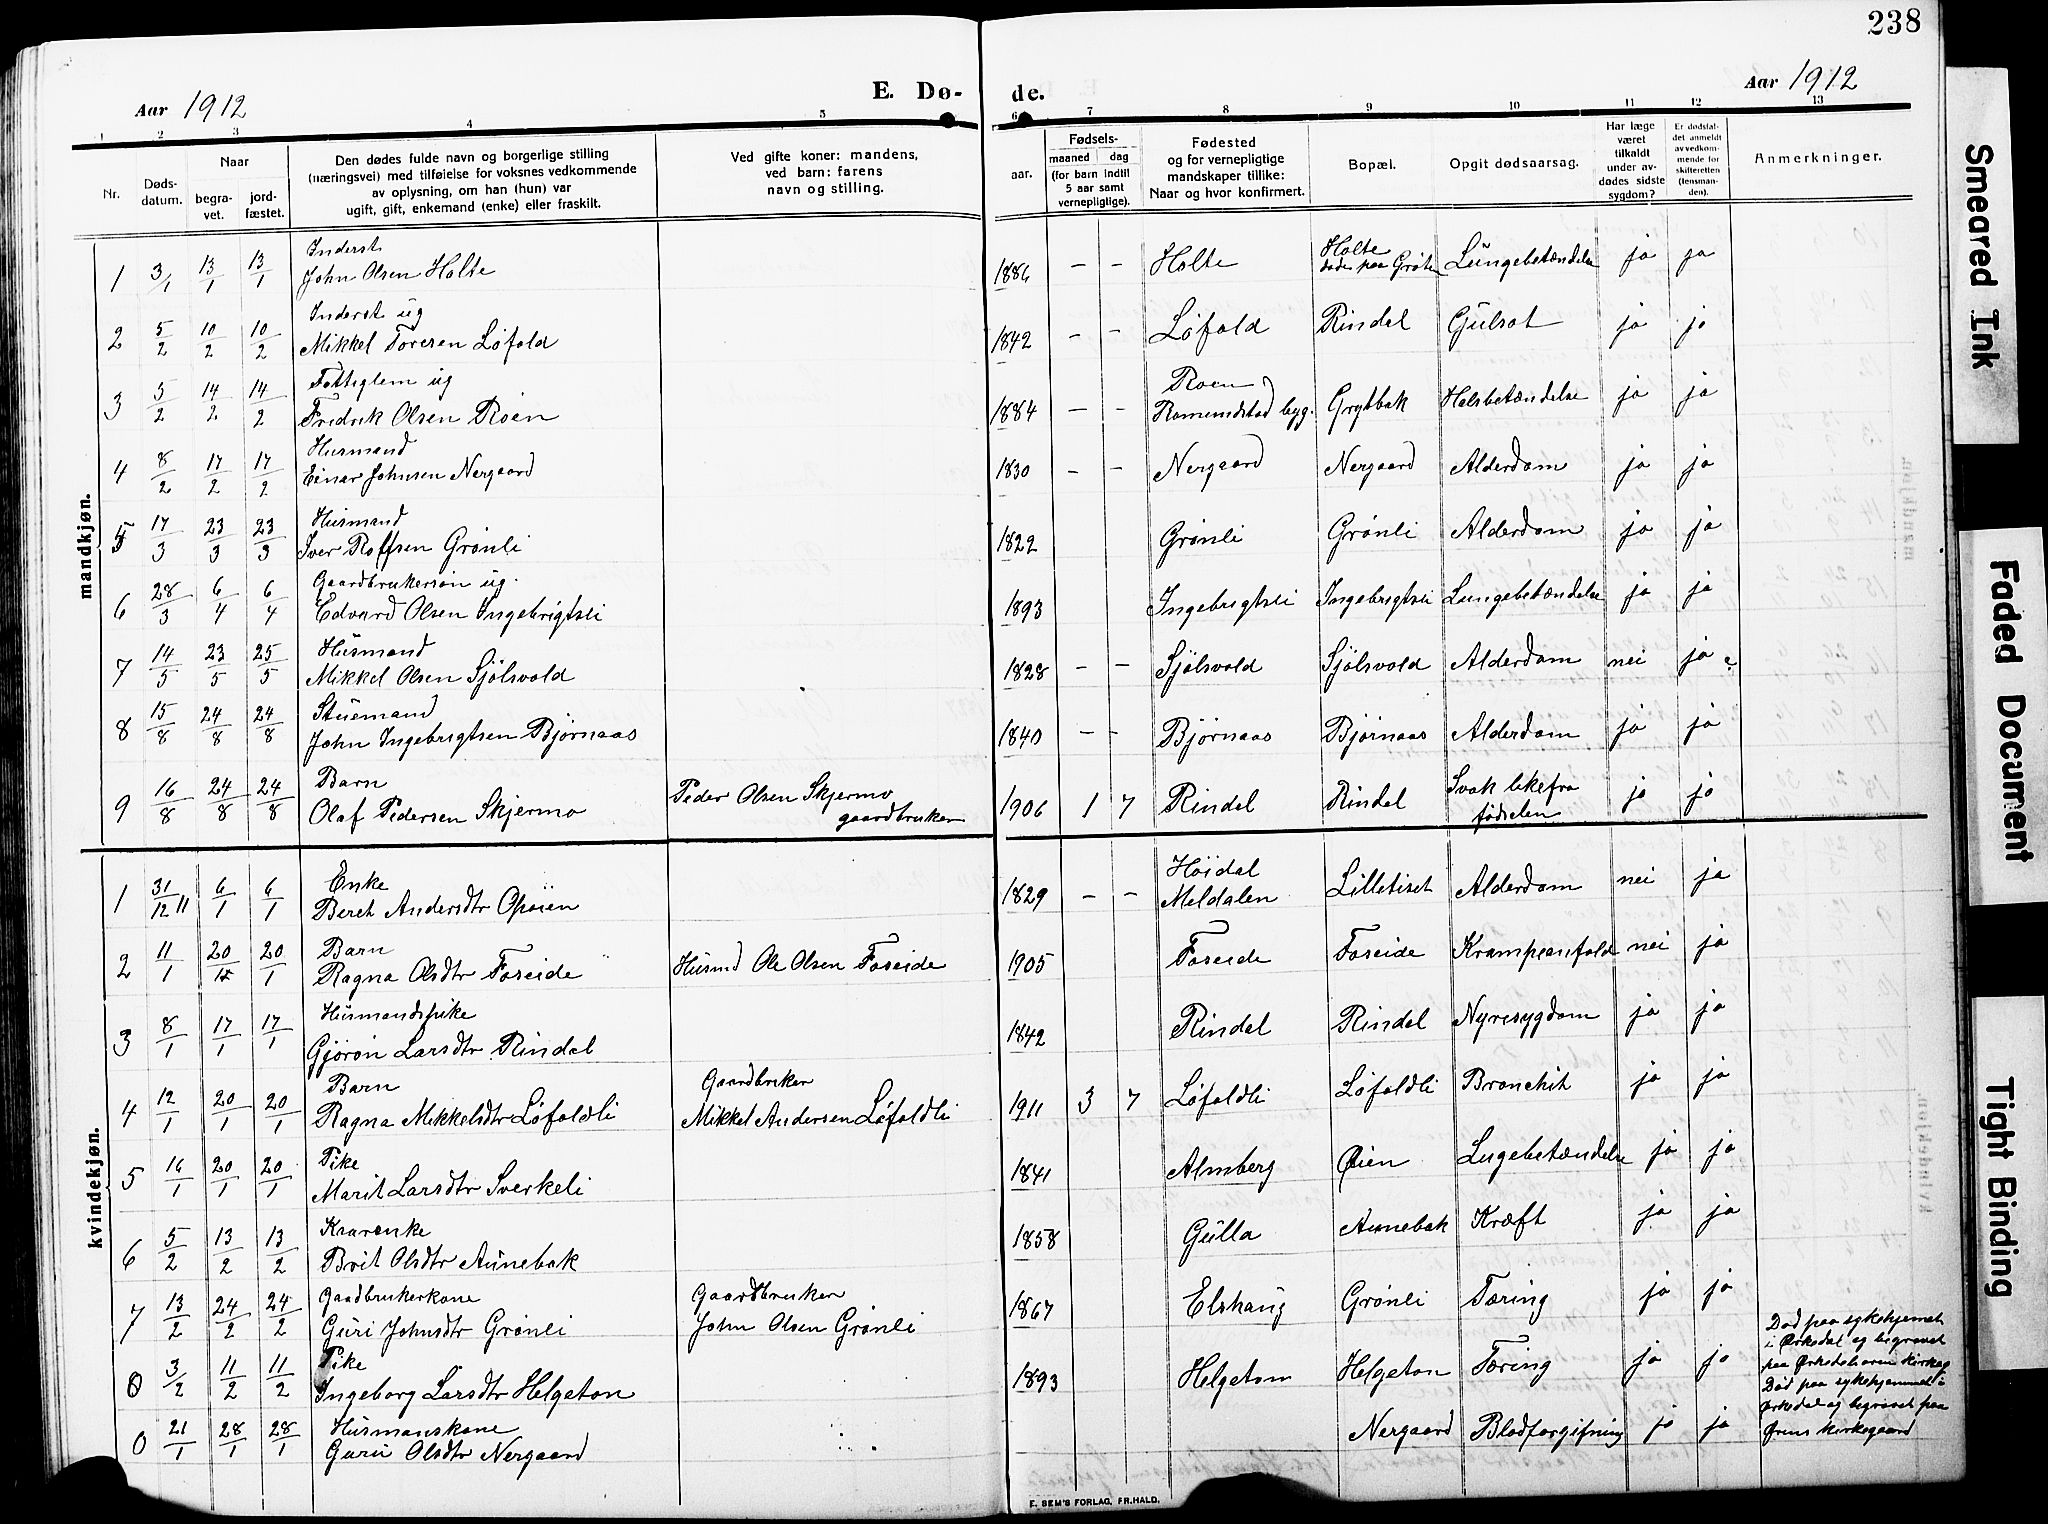 238
Aar 1912
E. Dø-
de.
Aar 1912
1 2 3 4 5 6 7 8 9 10 11 12 13
Nr.
Døds-
datum.
Naar
begra-
vet.
jord-
fæstet.
Den dødes fulde navn og borgerlige stilling
(næringsvei) med tilføielse for voksnes vedkommende
av oplysning, om han (hun) var
ugift, gift, enkemand (enke) eller fraskilt.
Ved gifte koner: mandens,
ved barn: farens
navn og stilling.
aar.
Fødsels-
maaned dag
(for barn indtil
5 aar samt
vernepligtige).
Fødested
og for vernepligtige
mandskaper tillike:
Naar og hvor konfirmert.
Bopæl.
Opgit dødsaarsag.
Har læge
været
tilkaldt
under av-
dødes sidste
sygdom?
Er dødsfal-
det anmeldt
av vedkom-
mende for
skifteretten
(lensman-
den).
Anmerkninger.
mandkjøn.
Inderst
1 3/1 13/1 13/1 John Olsen Holte 1886 – – Holte Holte døde paa Lungebetændelse ja ja
Inderst ug
2 5/2 10/2 10/2 Mikkel Toresen Løfald 1842 – – Løfald Rindal Gulsot ja ja
Fattiglem ug
3 5/2 14/2 14/2 Fredrik Olsen Roen 1884 – – Roen Romundstad byg. Grytbak Halsbetændelse ja ja
Husmand
4 8/2 17/2 17/2 Einar Johnsen Nergaard 1830 – – Nergaard Nergaard Alderdom ja ja
Husmand
5 17/3 23/3 23/3 Iver Grønli 1822 Grønli Grønli Alderdom ja ja
Gaardbrukersøn ug.
6 28/3 6/4 6/4 Edvard Olsen Ingebrigtsli 1893 Ingebrigtsli Ingebrigtsli Lungebetændelse ja ja
Husmand
7 14/5 23/5 25/5 Mikkel Olsen Sjølsvold 1828 – – Sjølsvold Sjølsvold Alderdom nei ja
Stuemand
8 15/8 24/8 24/8 John Ingebrigtsen Bjørnaas 1840 – – Bjørnaas Bjørnaas Alderdom ja ja
Barn
9 16/8 24/8 24/8 Olaf Pedersen Skjermo Peder Olsen Skjermo gaardbruker 1906 1 7 Rindal Rindal Svak like fra fødselen ja ja
kvindekjøn.
Enke
1 31/12 11 6/1 6/1 Beret Andersdtr Opøien 1829 – – Høidal Meldalen Lilletiset Alderdom nei ja
Barn
2 11/1 20/1 20/1 Ragna Olsdtr Foseide Husmd Ole Olsen Foseide 1905 Foseide Foseide Krampeanfald nei ja
Husmandspike
3 8/1 17/1 17/1 Gjørøn Larsdtr Rindal 1842 Rindal Rindal Nyresygdom ja ja
Barn Gaardbruker
4 12/1 20/1 20/1 Ragna Mikkelsdtr Løfaldli Mikkel Andersen Løfaldli 1911 3 7 Løfaldli Løfaldli Bronchit ja ja
Pike
5 16/1 20/1 20/1 Marit Larsdtr Sverkeli 1841 Almberg Øien Lugebetændelse ja ja
Kaarenke
6 5/2 13/2 13/2 Brit Olsdtr Aunebak 1858 Gulla Aunebak Kræft ja ja
Gaadbrukerkone Gaardbruker
7 13/2 24/2 24/2 Guri Johnsdtr Grønli John Olsen Grønli 1867 Elshaug Grønli Tæring ja ja
Pike
0 3/2 11/2 11/2 Ingeborg Larsdtr Helgeton 1893 Helgetom Helgeton Tæring ja ja
Død paa sykehjemet
i Ørkedal og begravet
paa
Husmanskone
0 21/1 28/1 28/1 Guru Olsdtr Nergaard Nergaard Blodforgifning ja ja
Død paa sykehjemmet i
Ørkedal og begravet paa
Ørens Kirkegaard
E. SEM'S FORLAG, FR.HALD.
Smeared Ink
Faded Document
Tight Binding